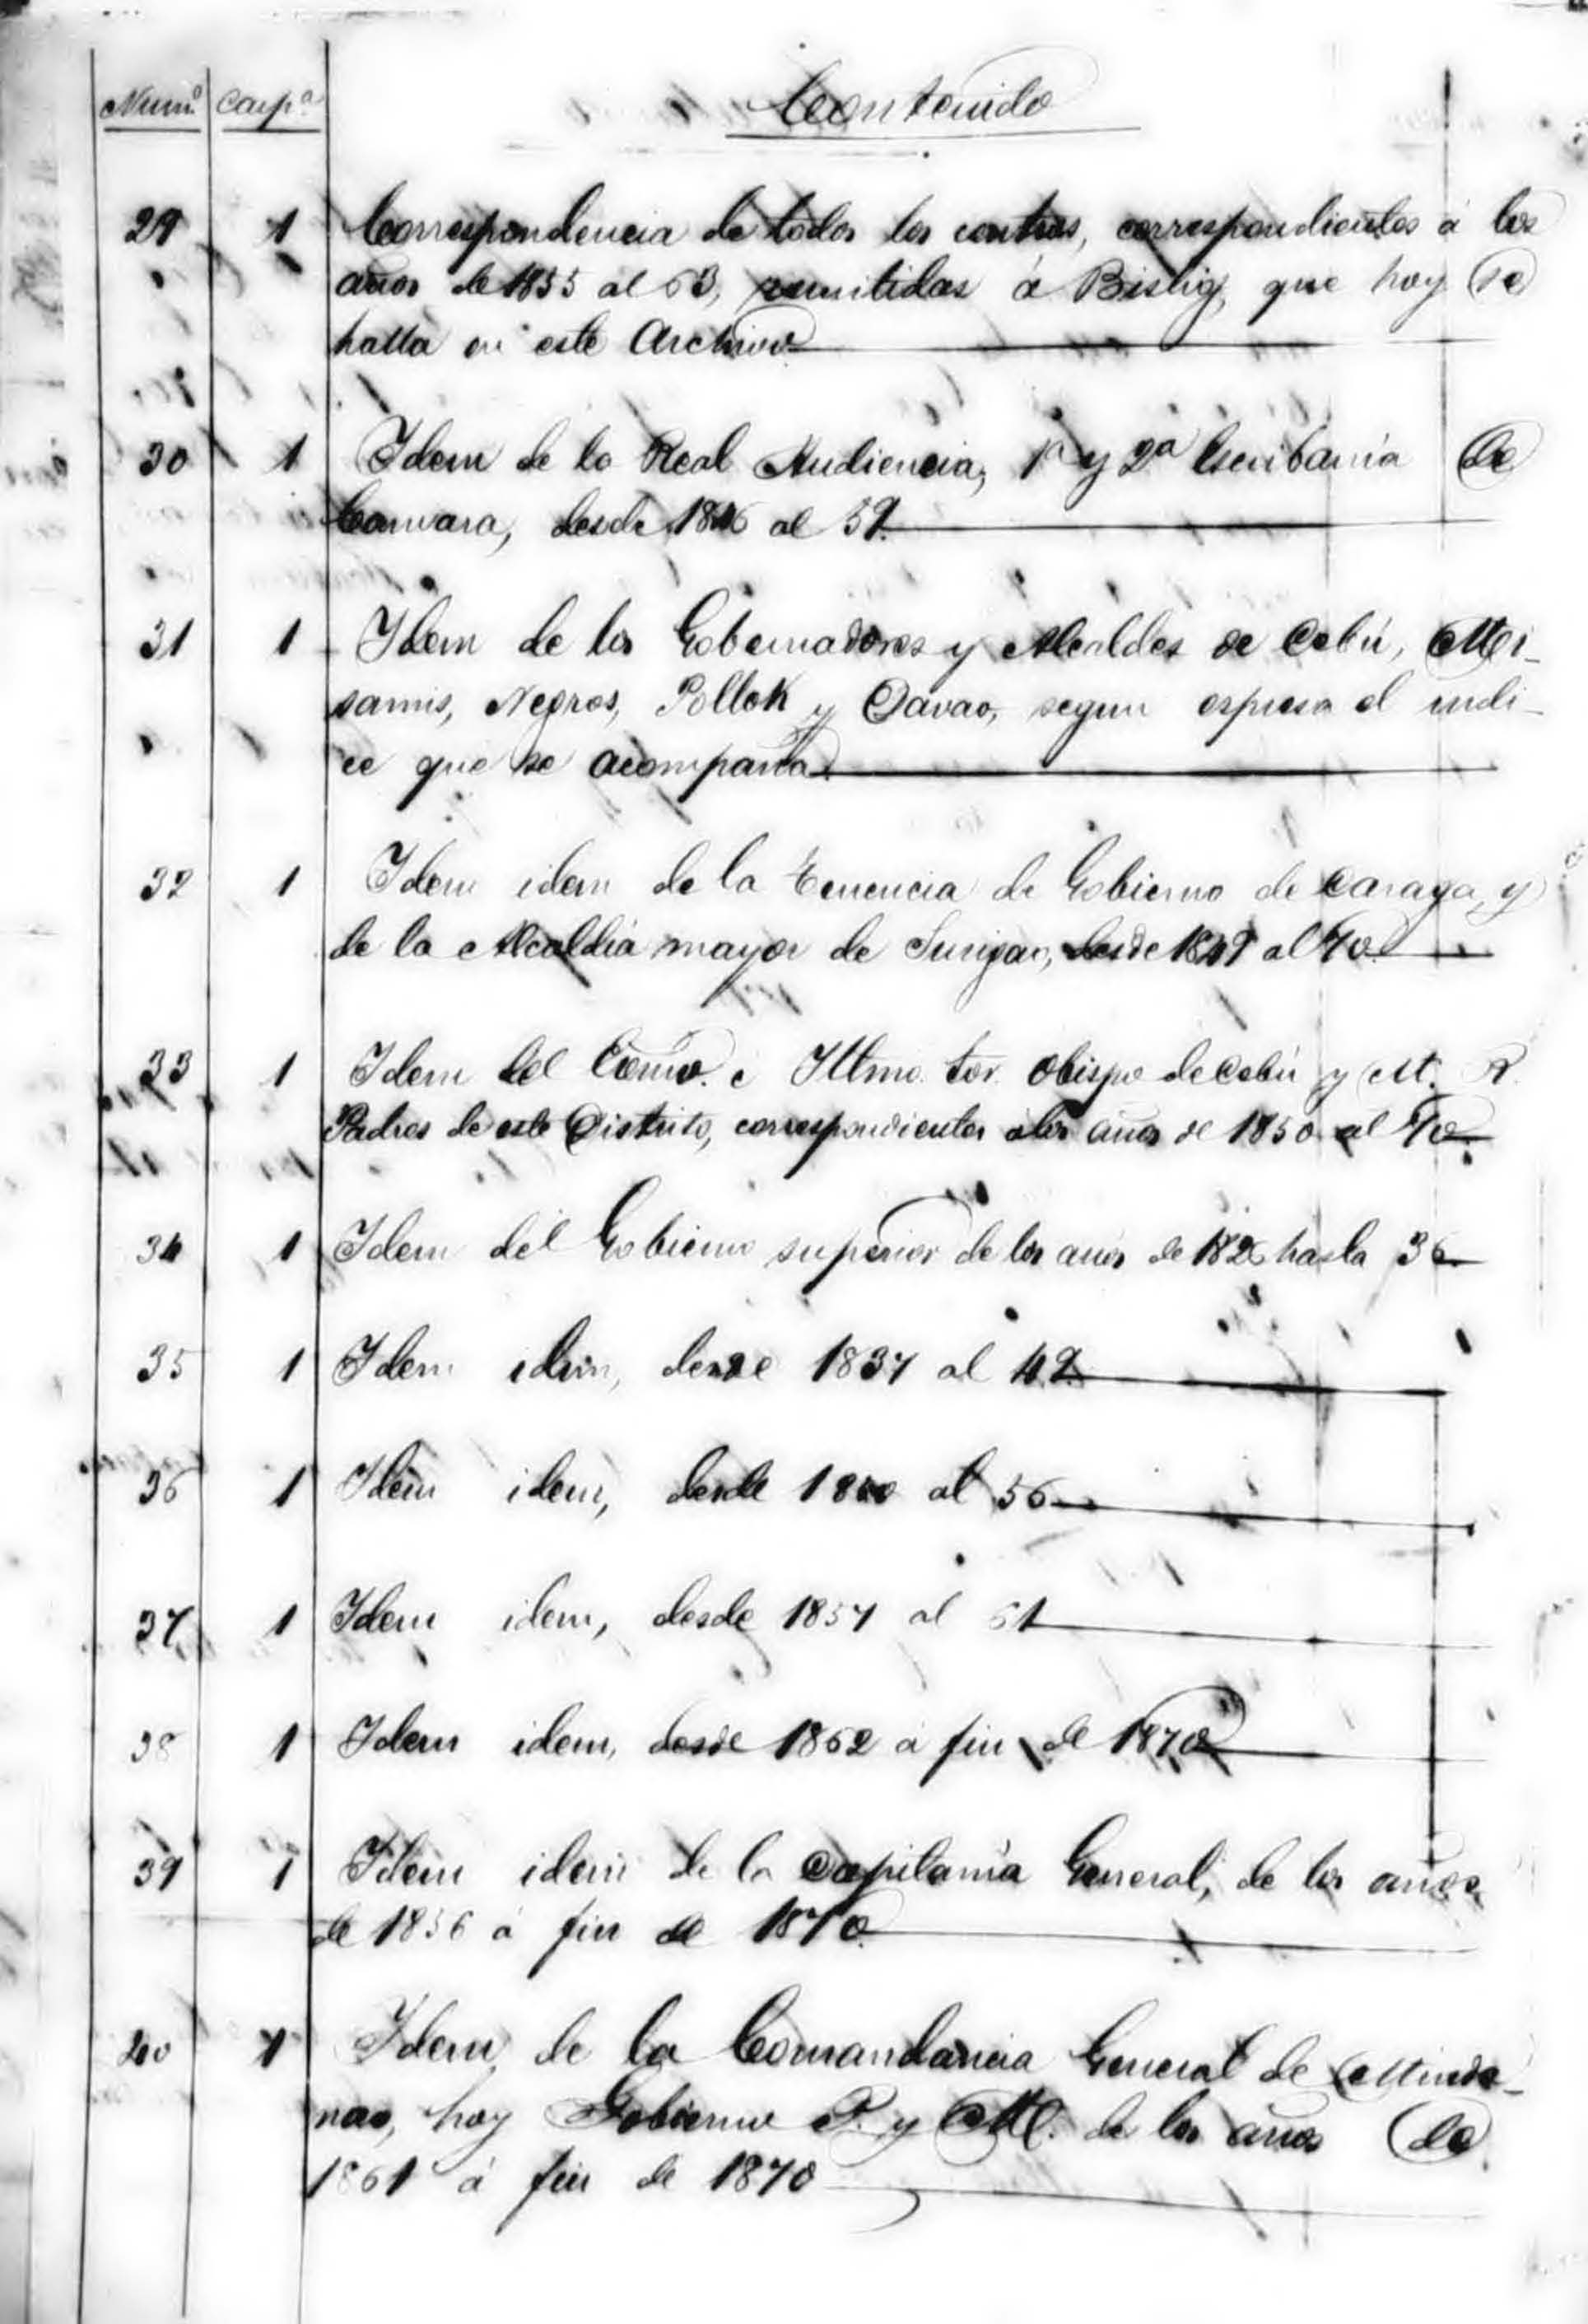 Num.º Carp.ª Contenido
29 1 Correspondencia de todos los centros, correspondientes á los
años de 1855 al 63, remitidas á Bislig, que hoy se
halla en este Archivo.
30 1 Idem de la Real Audiencia, 1ª y 2ª Escribanía de
Camara, desde 1846 al 59.
31 1 Idem de los Gobernadores y Alcaldes de Cebú, Mi-
samis, Negros, Pollok y Davao, segun espresa el indi-
ce que se acompaña.
32 1 Idem idem de la tenencia de Gobierno de Caraga, y
de la Alcaldía mayor de Surigao, desde 1849 al 70.
33 1 Idem del Excmo. é Iltmo. Sor. Obispo de Cebú y M. R.
Padres de este Distrito, correspondientes á los años de 1850 al 70.
34 1 Idem del Gobierno superior de los años de 182 hasta 36
35 1 Idem idem, desde 1837 al 49.
36 1 Idem idem, desde 1850 al 56
37 1 Idem idem, desde 1857 al 61
38 1 Idem idem, desde 1862 á fin de 1870
39 1 Idem idem de la Capitanía General, de los años
de 1856 á fin de 1870.
40 1 Idem de la Comandancia General de Minda-
nao, hoy Gobierno P. y M. de los años de
1861 á fin de 1870